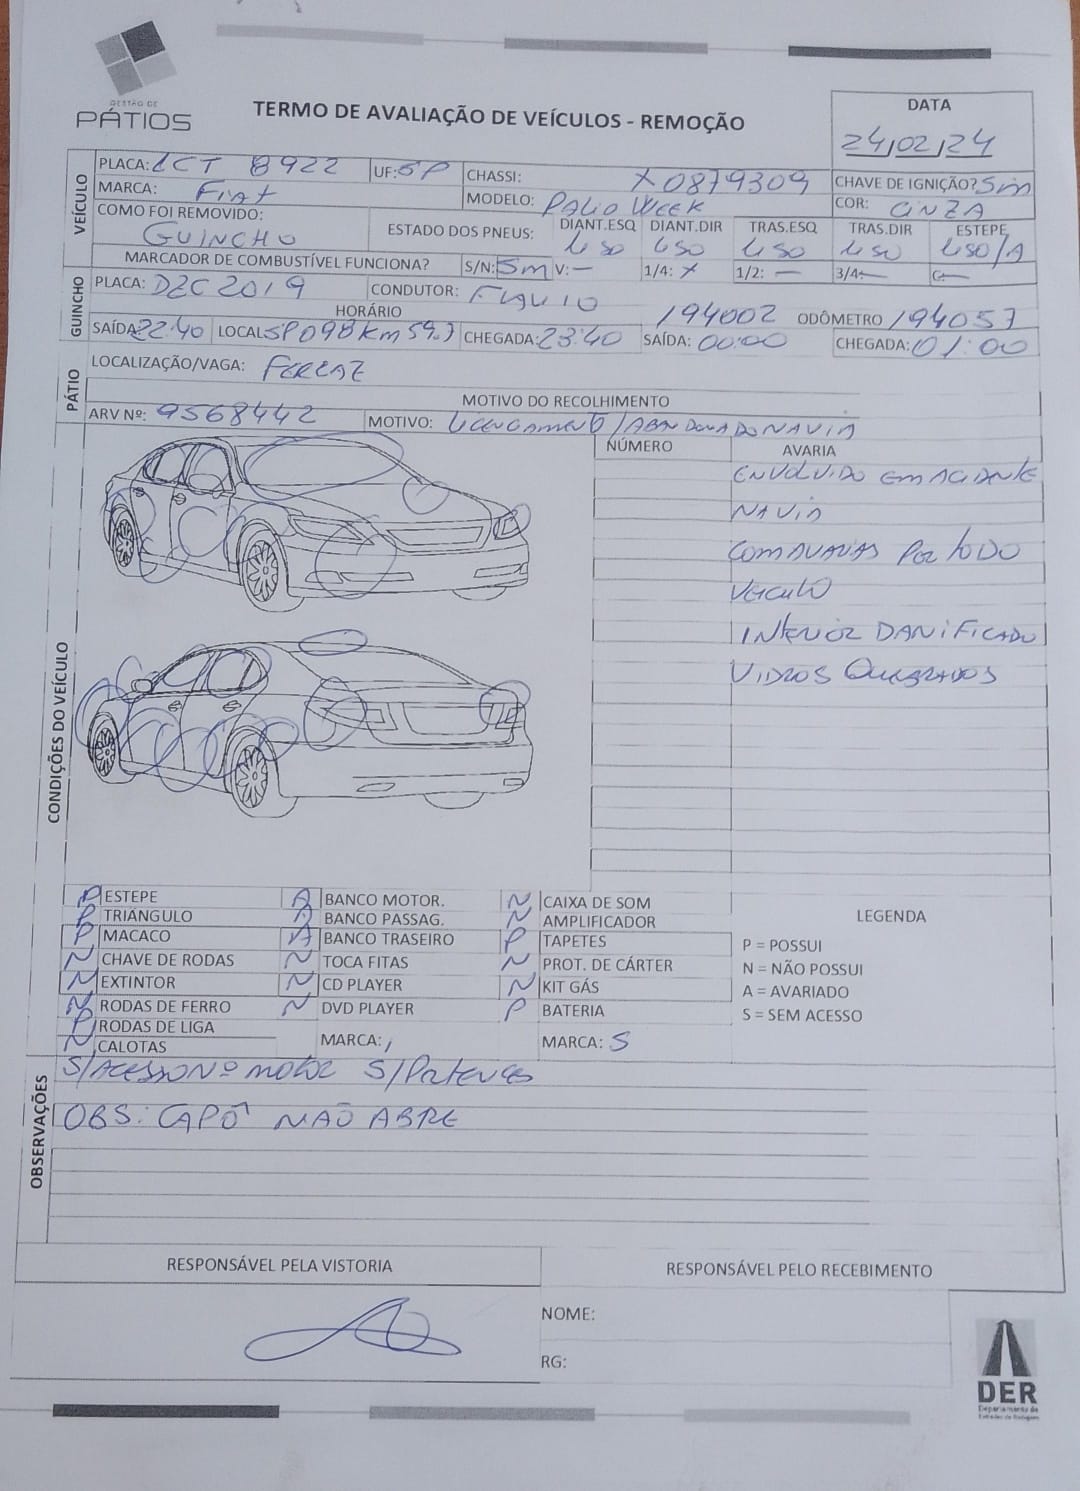 GESTÃO DE
PÁTIOS
TERMO DE AVALIAÇÃO DE VEÍCULOS - REMOÇÃO
DATA
24/02/24
VEÍCULO
PLACA: LCT 8922 UF: SP CHASSI: X0879309 CHAVE DE IGNIÇÃO? Sim
MARCA: Fiat MODELO: PALIO WEEK COR: CINZA
COMO FOI REMOVIDO: GUINCHO
ESTADO DOS PNEUS: DIANT.ESQ DIANT.DIR TRAS.ESQ TRAS.DIR ESTEPE
uso uso uso uso uso/A
MARCADOR DE COMBUSTÍVEL FUNCIONA? S/N: Sim V: — 1/4: X 1/2: — 3/4: — C: —
GUINCHO
PLACA: DZC 2019 CONDUTOR: FLAVIO
HORÁRIO 194002 ODÔMETRO 194057
SAÍDA: 22:40 LOCAL: SP 098 Km 59.7 CHEGADA: 23:40 SAÍDA: 00:00 CHEGADA: 01:00
PÁTIO
LOCALIZAÇÃO/VAGA: FERRAZ
MOTIVO DO RECOLHIMENTO
ARV Nº: 9568442 MOTIVO: Licenciamento / ABANDONADO NA VIA
CONDIÇÕES DO VEÍCULO
NÚMERO AVARIA
ENVOLVIDO EM ACIDENTE
NA VIA
COM AVARIAS POR TODO
VEICULO
INTERIOR DANIFICADO
VIDROS QUEBRADOS
P ESTEPE A BANCO MOTOR. N CAIXA DE SOM
P TRIÂNGULO A BANCO PASSAG. N AMPLIFICADOR
P MACACO A BANCO TRASEIRO P TAPETES
N CHAVE DE RODAS N TOCA FITAS N PROT. DE CÁRTER
N EXTINTOR N CD PLAYER N KIT GÁS
N RODAS DE FERRO N DVD PLAYER P BATERIA
P RODAS DE LIGA MARCA: MARCA: S
N CALOTAS
LEGENDA
P = POSSUI
N = NÃO POSSUI
A = AVARIADO
S = SEM ACESSO
OBSERVAÇÕES
S/ACESSO Nº motor S/Pertences
OBS: CAPÔ NAO ABRE
RESPONSÁVEL PELA VISTORIA RESPONSÁVEL PELO RECEBIMENTO
NOME:
RG:
DER
Departamento de
Estradas de Rodagem